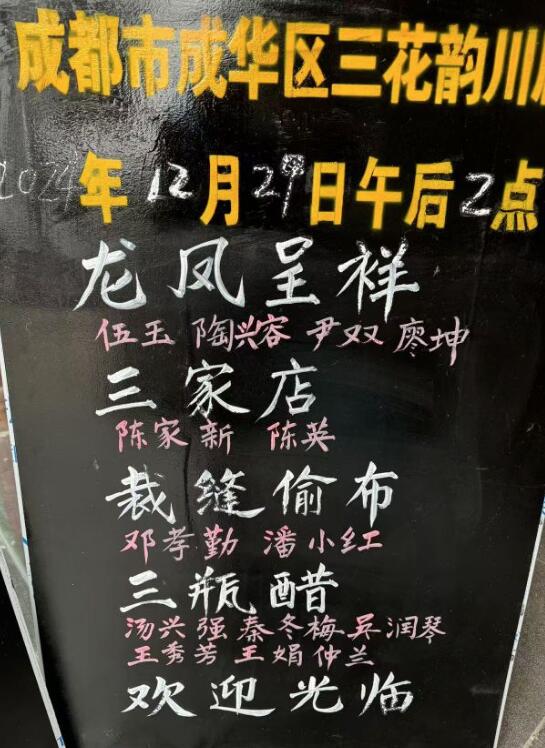 成都市成华区三花韵川
2024年12月29日午后2点
龙凤呈祥
伍玉 陶兴容 尹双 廖坤
三家店
陈家新 陈英
裁缝偷布
邓孝勤 潘小红
三瓶醋
汤兴强 秦冬梅 吴润琴
王秀芳 王娟 仲兰
欢迎光临